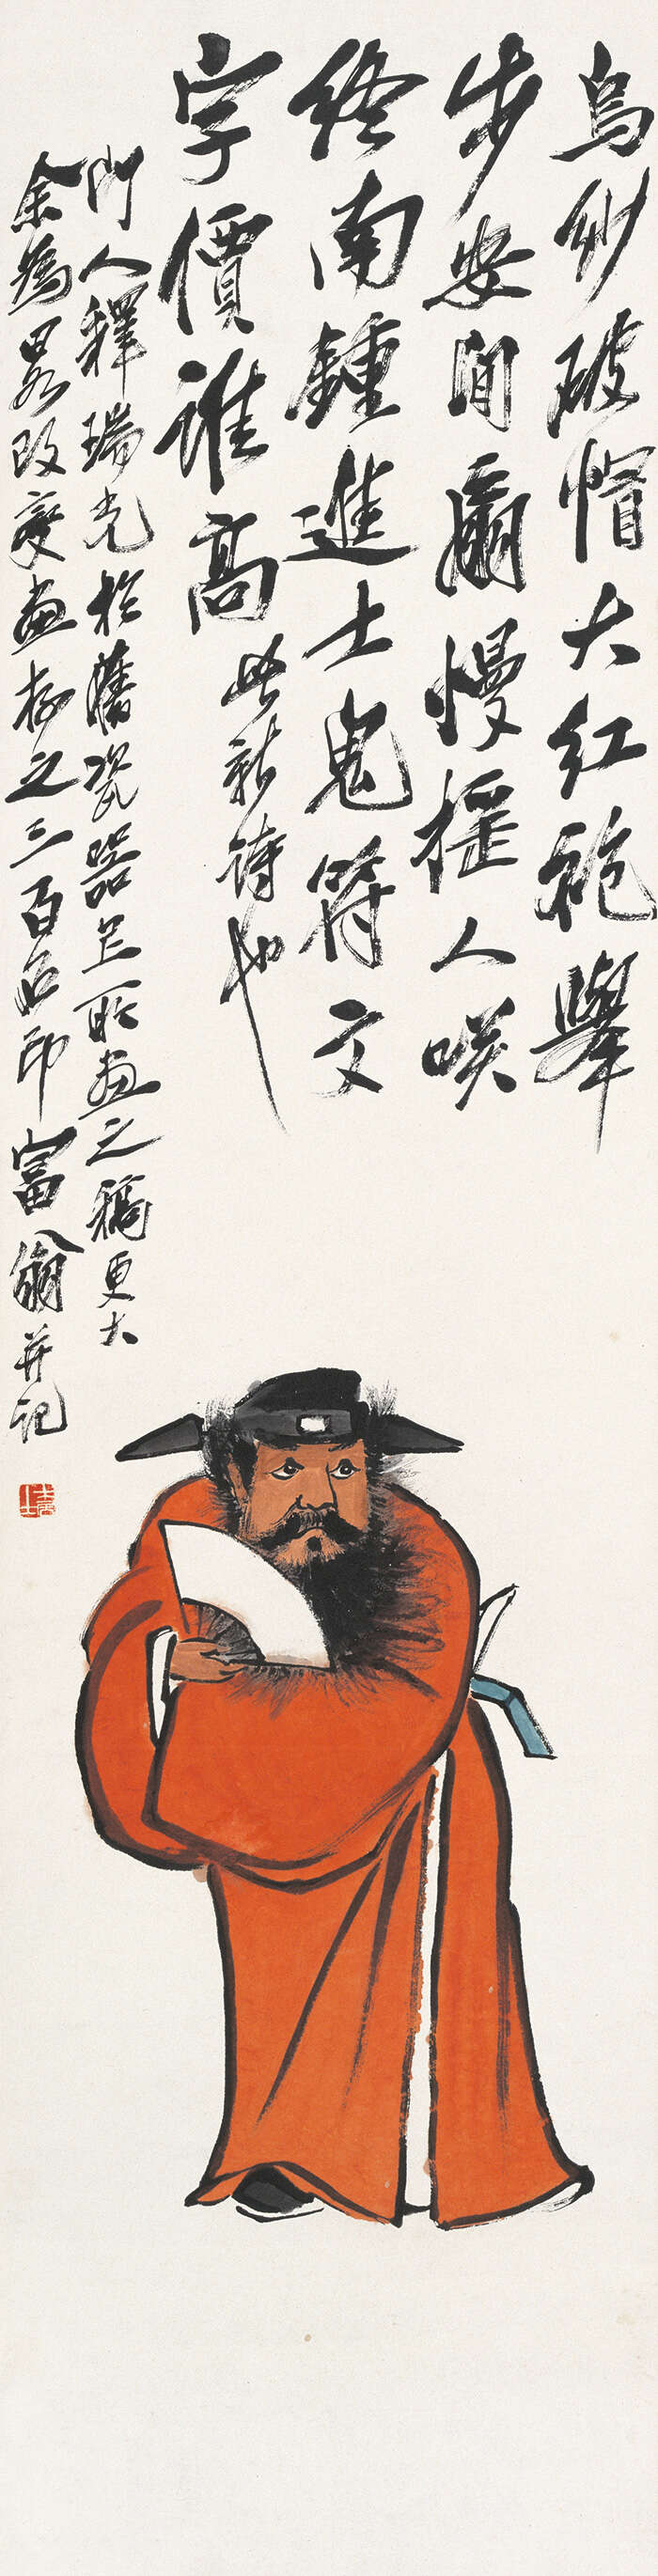 烏紗破帽大紅袍舉
步安閒扇慢搖人笑
終南鍾進士鬼符文
字價誰高
此新詩也
門人釋瑞光於舊瓷器上所畫之稿更大
余為畧改變畫存之三百石印富翁并記